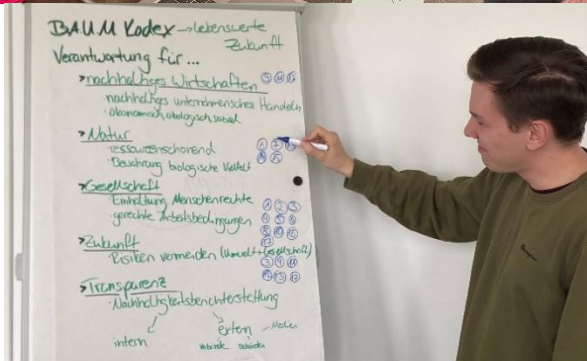 B.A.U.M Kodex → lebenswerte
Zukunft
Verantwortung für...
> nachhaltiges Wirtschaften
· nachhaltiges unternehmerisches Handeln
· ökonomisch, ökologisch, sozial
> Natur
· ressourcenschonend
· Bewahrung biologische Vielfalt
> Gesellschaft
· Einhaltung Menschenrechte ① ② ③
· gerechte Arbeitsbedingungen
> Zukunft
· Risiken vermeiden (Umwelt + Gesellschaft)
> Transparenz
· Nachhaltigkeitsberichterstattung
intern
extern - Medien